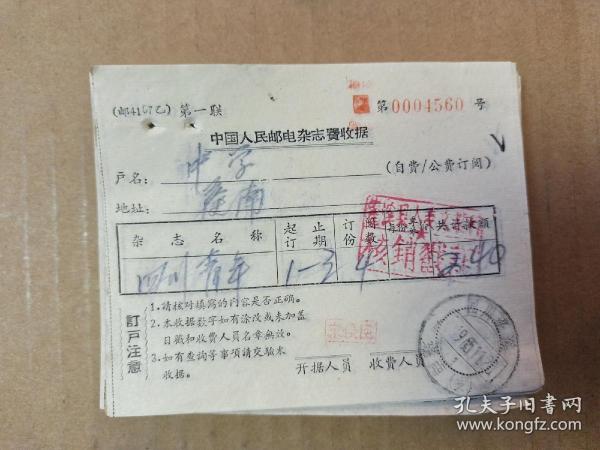 (邮4167乙) 第一联
第0004560号
中国人民邮电杂志费收据
户名: 中学 (自费/公费订阅)
地址: 南
杂志名称 起止订期 订阅份数 每份单价 共计款额
四川青年 1-3 4 40
核销
订户注意
1.请核对填写的内容是否正确。
2.本收据数字如有涂改或未加盖
日戳和收费人员名章无效。
3.如有查询等事项请交验本
收据。
开据人员 收费人员
孔夫子旧书网
www.kongfz.com